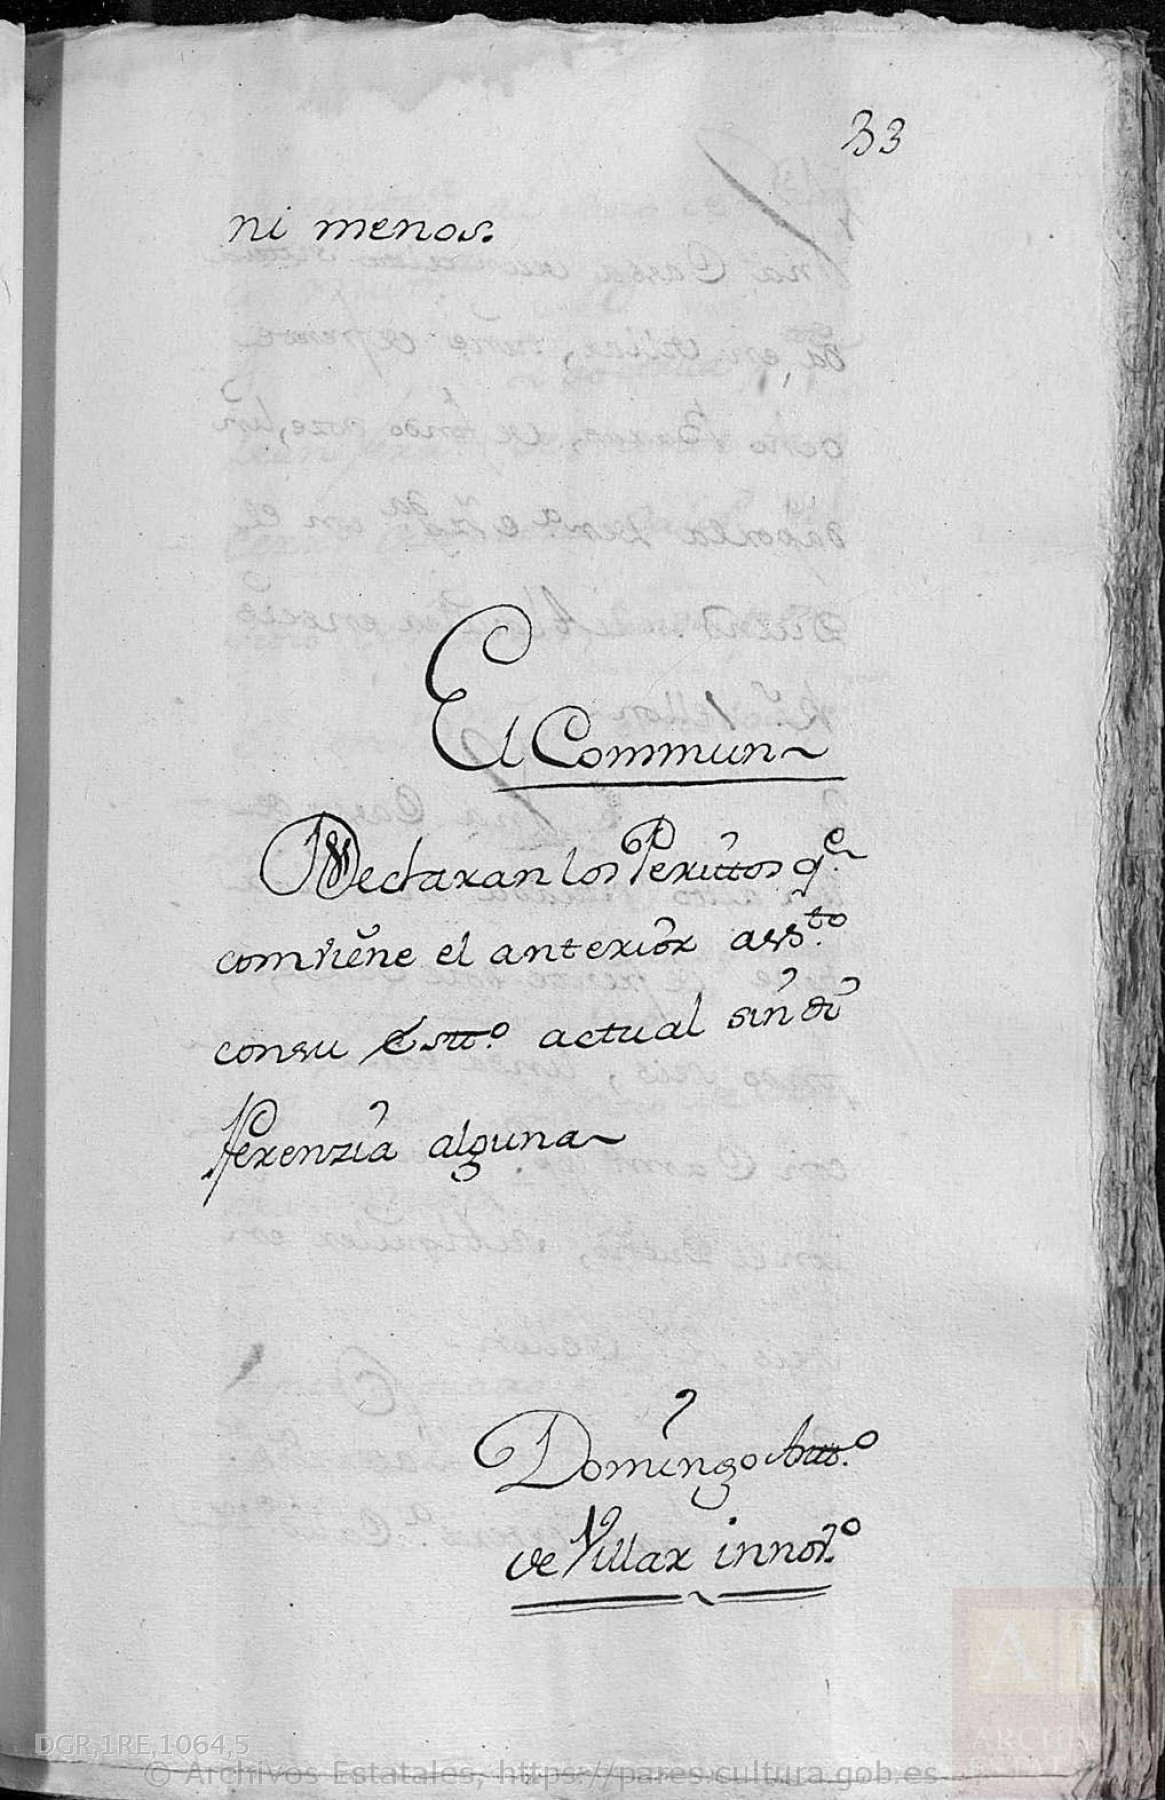 33
ni menos.
El Commun
Declaran los Perittos q.e
comviene el anterior ass.to
consu Estt.o actual sin di
fferenzia alguna
Domingo Antt.o
de Villar
DGR,1RE,1064,5
© Archivos Estatales, https://pares.cultura.gob.es